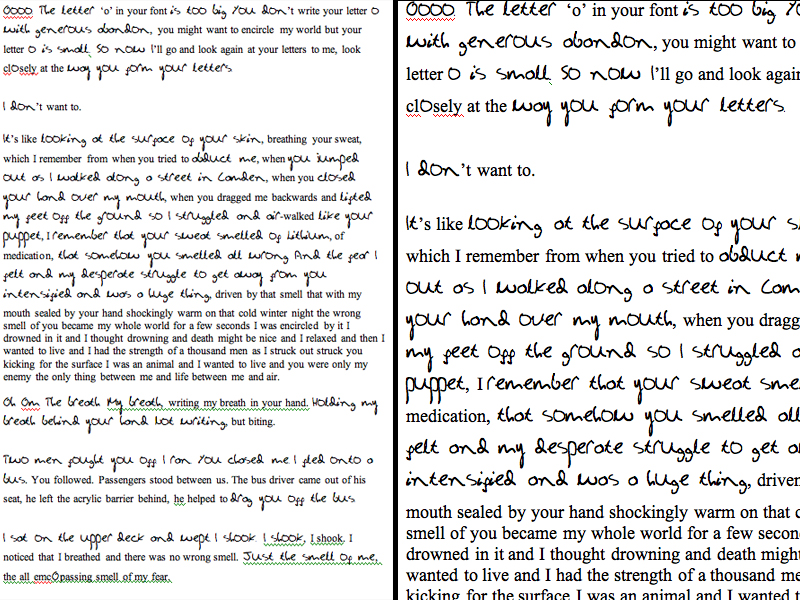 OOOO The letter ‘o’ in your font is too big You don’t write your letter O
with generous abandon, you might want to encircle my world but your
letter O is small So now I’ll go and look again at your letters to me, look
clOsely at the way you form your letters
I don’t want to.
It’s like looking at the surface of your skin, breathing your sweat,
which I remember from when you tried to abduct me, when you jumped
out as I walked along a street in Camden, when you closed
your hand over my mouth, when you dragged me backwards and lifted
my feet off the ground so I struggled and air-walked like your
puppet, I remember that your sweat smelled of Lithium, of
medication, that somehow you smelled all wrong And the fear I
felt and my desperate struggle to get away from you
intensified and was a huge thing, driven by that smell that with my
mouth sealed by your hand shockingly warm on that cold winter night the wrong
smell of you became my whole world for a few seconds I was encircled by it I
drowned in it and I thought drowning and death might be nice and I relaxed and then I
wanted to live and I had the strength of a thousand men as I struck out struck you
kicking for the surface I was an animal and I wanted to live and you were only my
enemy the only thing between me and life between me and air.
Oh Om The breath My breath, writing my breath in your hand. Holding my
breath behind your hand Not writing, but biting.
Two men fought you off I ran You closed me I fled onto a
bus. You followed. Passengers stood between us. The bus driver came out of his
seat, he left the acrylic barrier behind, he helped to drag you off the bus
I sat on the upper deck and wept I shook. I shook, I shook. I
noticed that I breathed and there was no wrong smell. Just the smell of me,
the all emcOpassing smell of my fear.
OOOO The letter ‘o’ in your font is too big Yo
with generous abandon, you might want to
letter O is small So now I’ll go and look again
clOsely at the way you form your letters
I don’t want to.
It’s like looking at the surface of your s
which I remember from when you tried to abduct m
out as I walked along a street in Cam
your hand over my mouth, when you dragg
my feet off the ground so I struggled a
puppet, I remember that your sweat sme
medication, that somehow you smelled all
felt and my desperate struggle to get a
intensified and was a huge thing, driven
mouth sealed by your hand shockingly warm on that c
smell of you became my whole world for a few secon
drowned in it and I thought drowning and death might
wanted to live and I had the strength of a thousand me
kicking for the surface I was an animal and I wanted to